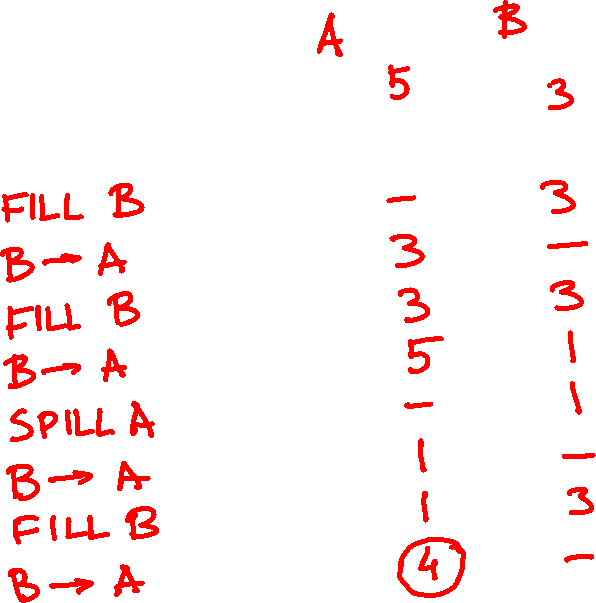 A B
5 3
FILL B – 3
B → A 3 –
FILL B 3 3
B → A 5 1
SPILL A – 1
B → A 1 –
FILL B 1 3
B → A 4 –